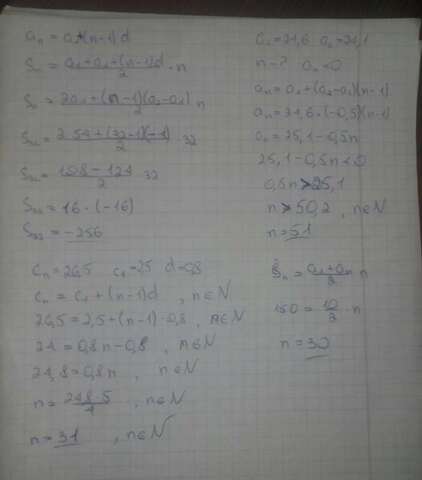 aₙ = a₁+(n-1)d
Sₙ = (a₁+a₁+(n-1)d)/2 · n
Sₙ = (2a₁+(n-1)(a₂-a₁))/2 n
S₃₂ = 32
S₃₂ = 32
S₃₂ = 16 · (-16)
S₃₂ = -256
cₙ = 26,5 c₁ = 2,5 d = 0,8
cₙ = c₁ + (n-1)d , n∈N
26,5 = 2,5 + (n-1) · 0,8 , n∈N
24 = 0,8n - 0,8 , n∈N
24,8 = 0,8n , n∈N
n = , n∈N
n = 31 , n∈N
a₁ = 24,6 a₂ = 24,1
n - ? aₙ < 0
aₙ = a₁ + (a₂-a₁)(n-1)
aₙ = 24,6 + (-0,5)(n-1)
aₙ = 25,1 - 0,5n
25,1 - 0,5n < 0
0,5n > 25,1
n > 50,2 , n∈N
n = 51
Sₙ = (a₁+aₙ)/2 n
150 = · n
n = 30